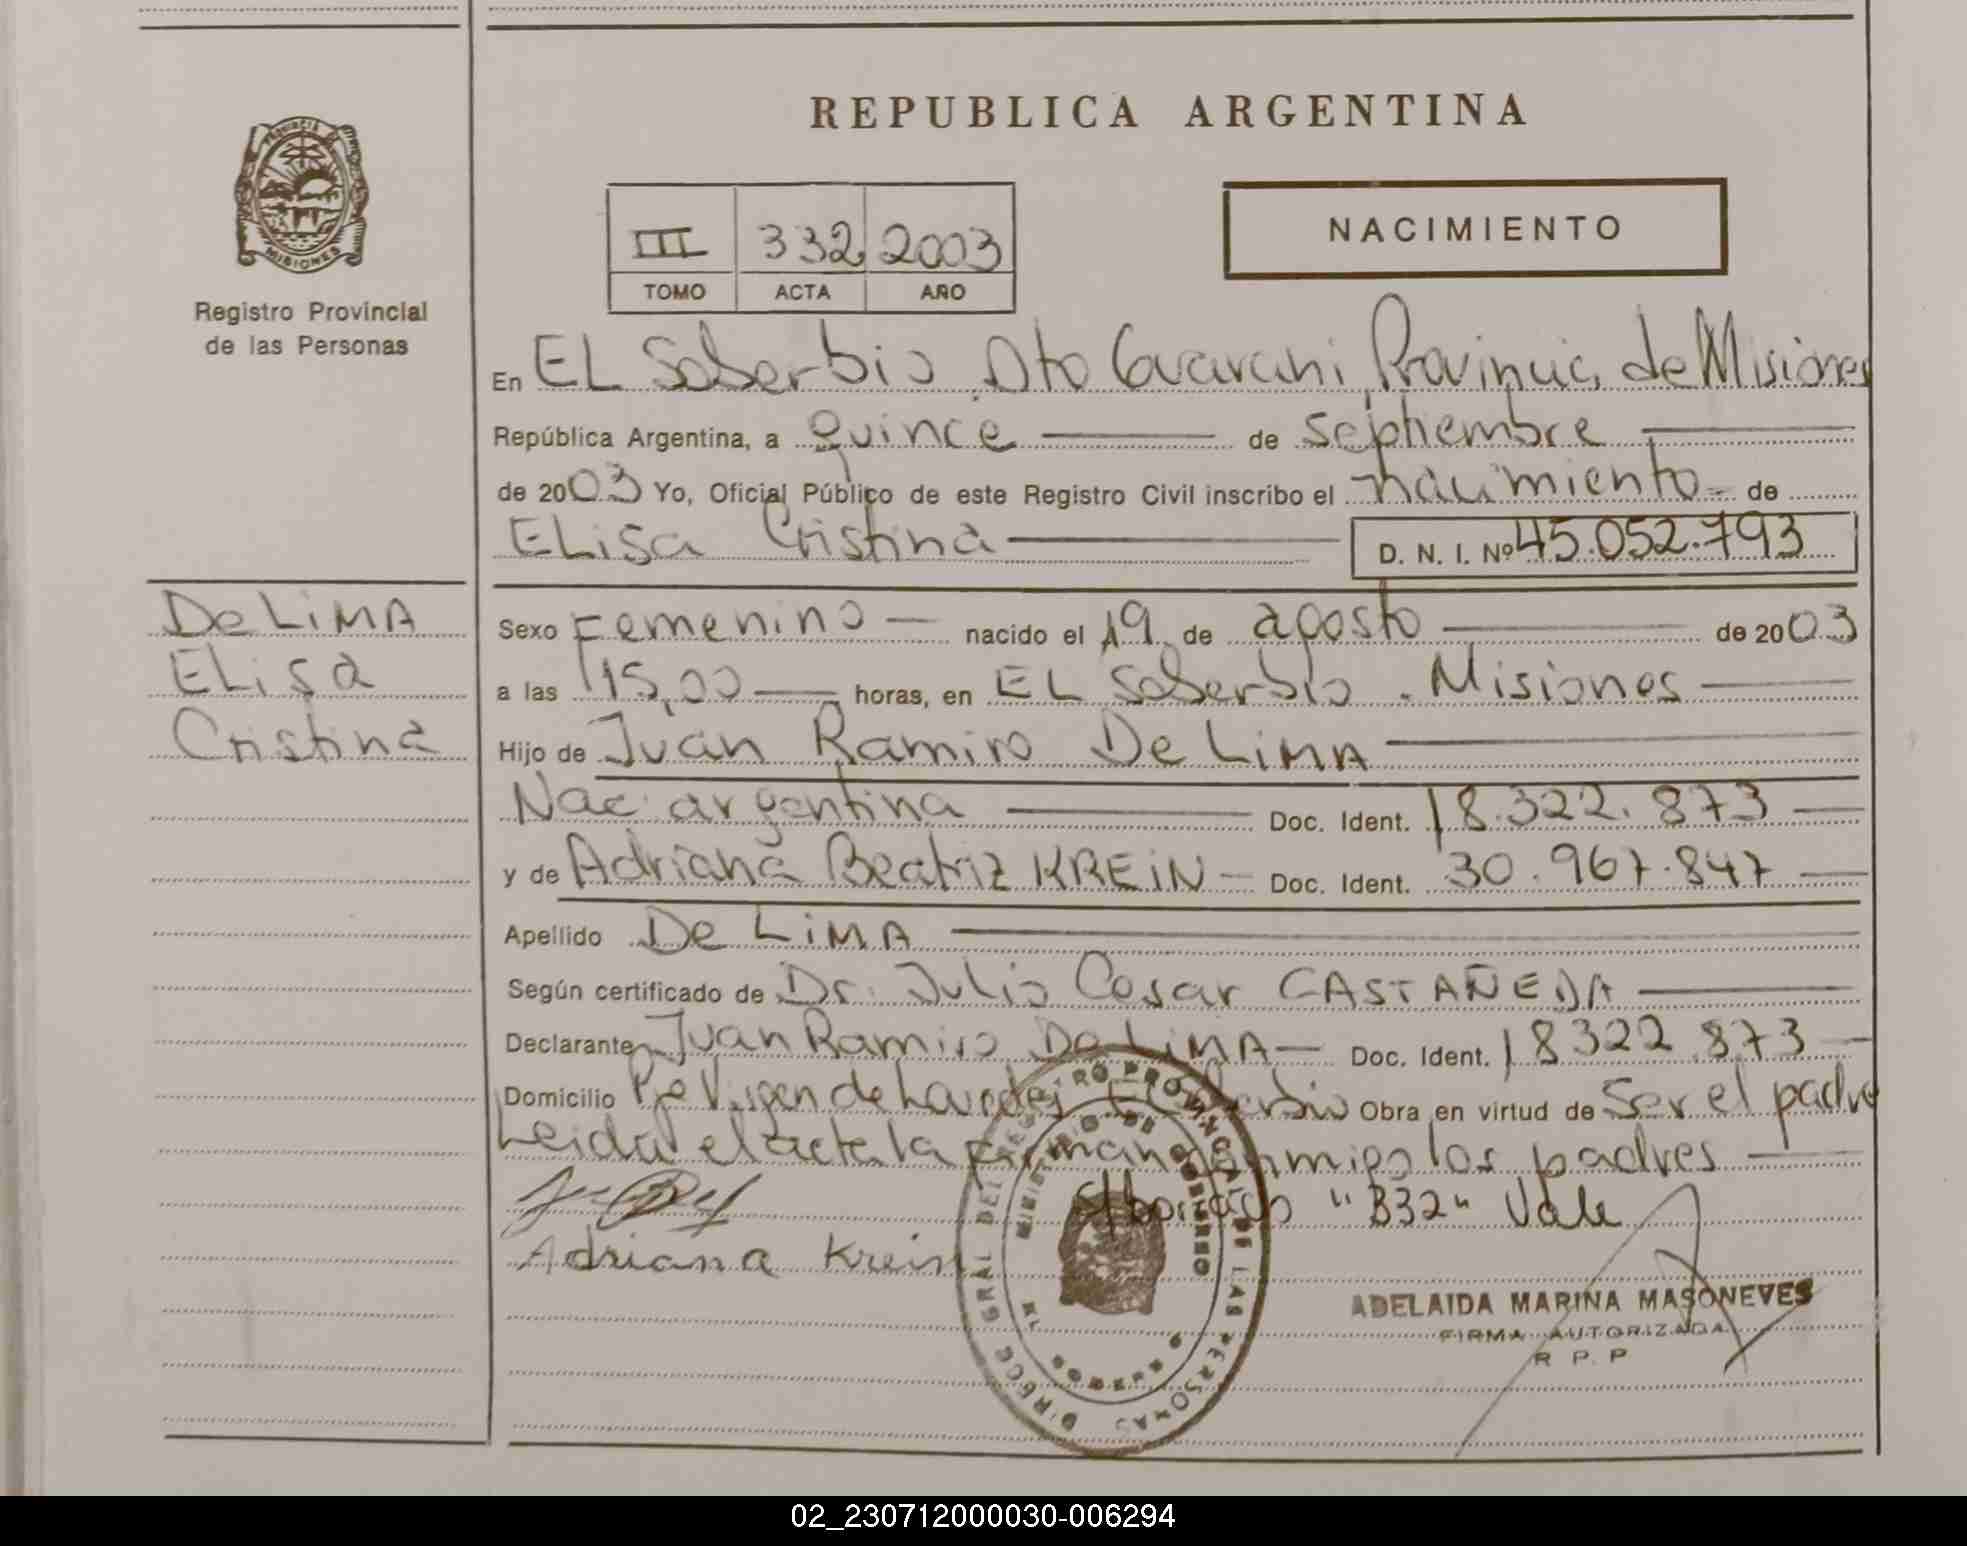 REPUBLICA ARGENTINA
PROVINCIA DE
MISIONES
Registro Provincial
de las Personas
III 332 2003
TOMO ACTA AÑO
NACIMIENTO
En EL Soberbio Dto Guarani Provincia de Misiones
República Argentina, a quince de septiembre
de 2003 Yo, Oficial Público de este Registro Civil inscribo el nacimiento de
ELisa Cristina D. N. I. Nº 45.052.793
De LiMA
ELisa
Cristina
Sexo Femenino nacido el 19 de agosto de 2003
a las 15,00 horas, en EL Soberbio . Misiones
Hijo de Juan Ramiro De LiMA
Nac. argentina Doc. Ident. 18.322.873
y de Adriana Beatriz KREiN Doc. Ident. 30.967.847
Apellido De LiMA
Según certificado de Dr. Julio Cesar CASTAÑEDA
Declarante Juan Ramiro De LiMA Doc. Ident. 18322.873
Domicilio Pje Virgen de Lourdes El Soberbio Obra en virtud de Ser el padre
Leida el acta la firman conmigo los padres
S/borrado "332" Vale
Adriana Krein
ADELAIDA MARINA MASONEVES
FIRMA AUTORIZADA
R P. P
DIRECC GRAL DEL REGISTRO PROVINCIAL DE LAS PERSONAS
MINISTERIO DE GOBIERNO
02_230712000030-006294